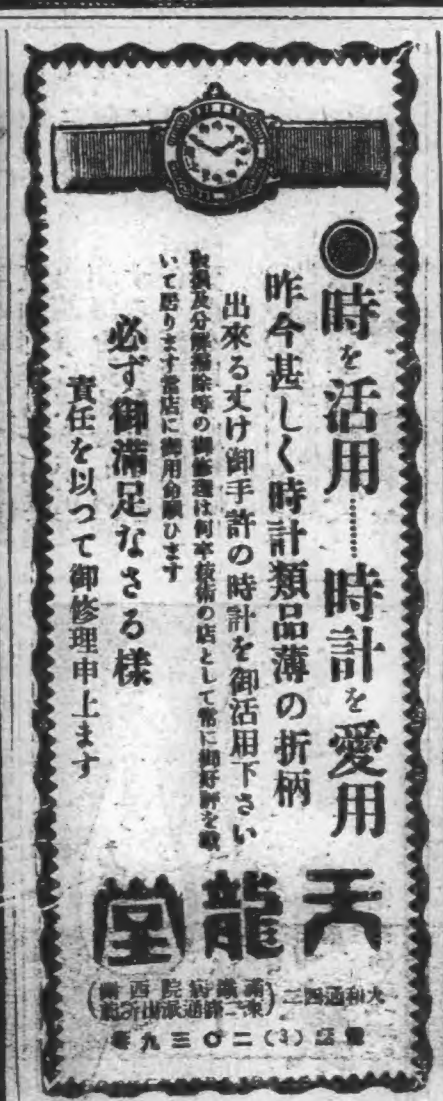 時を活用……時計を愛用
昨今甚しく時計類品薄の折柄
出來る丈け御手許の時計を御活用下さい
取損及分解掃除等の御修理は何卒技術の店として常に御好評を戴
いて居ります當店に御用命願ひます
必ず御滿足なさる樣
責任を以つて御修理申上ます
天龍堂
大和通四二
電話(3)二〇三九番